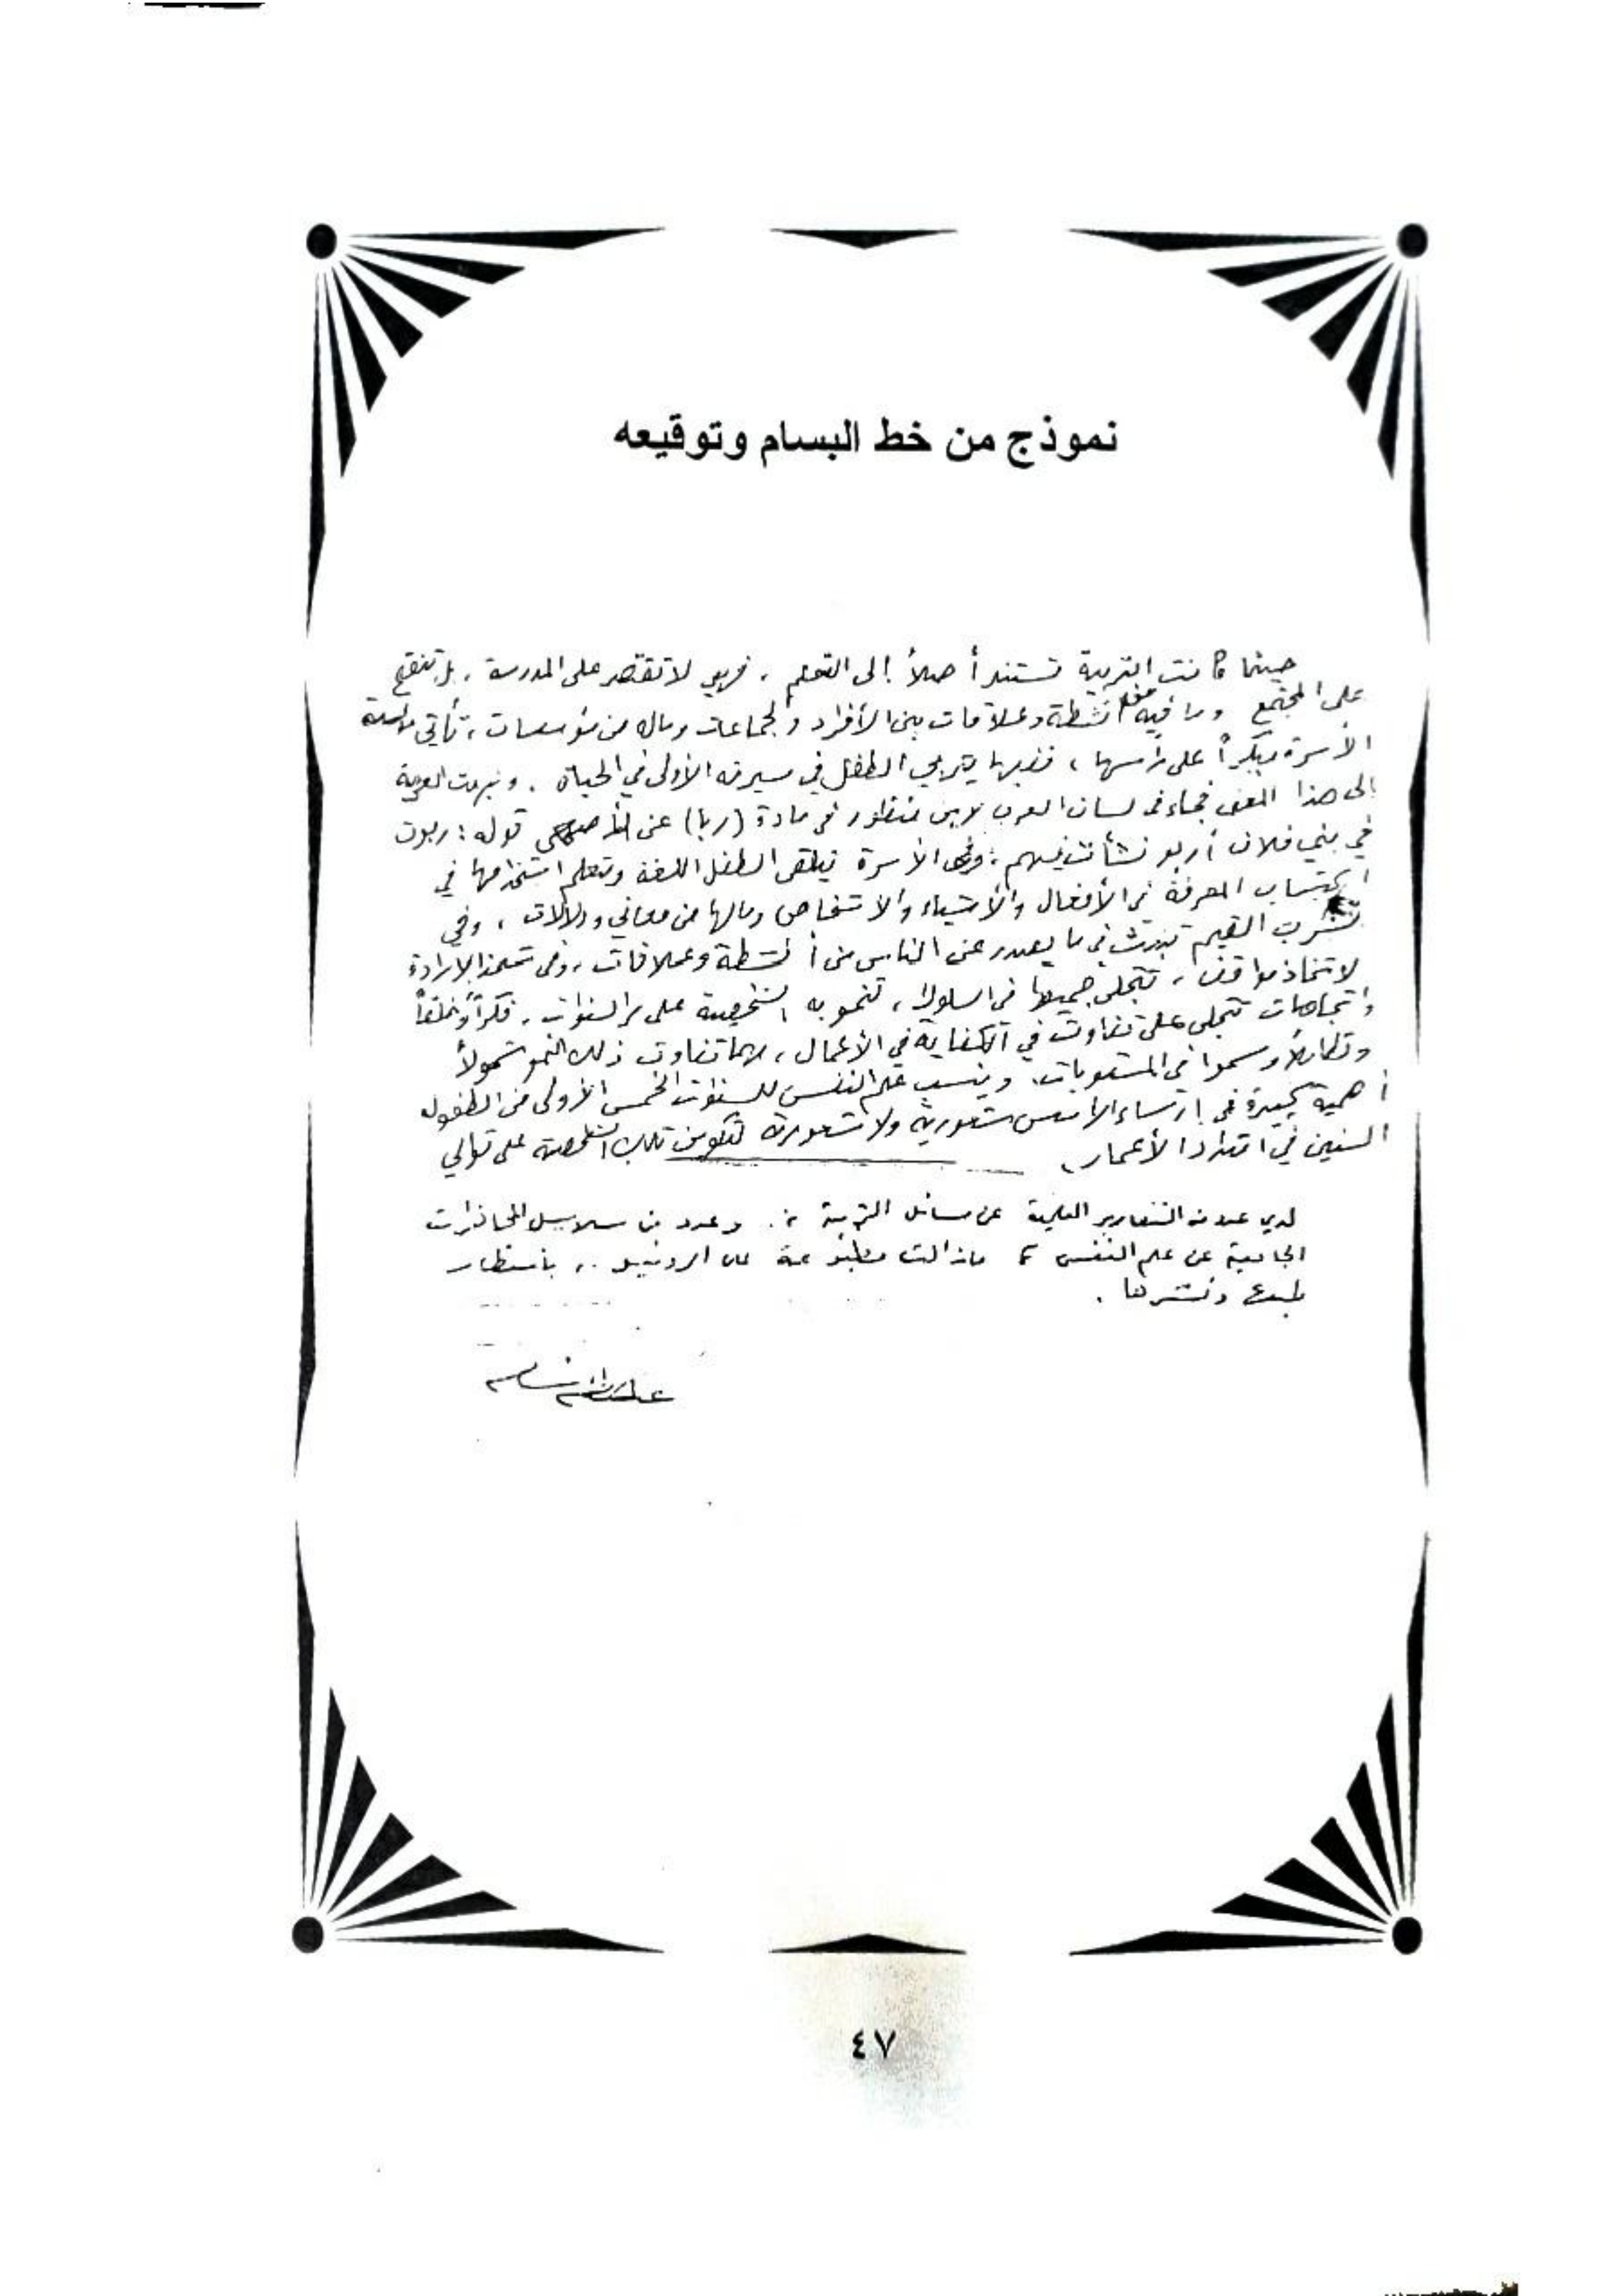 نموذج من خط البسام وتوقيعه
حينما كانت التربية تستند أصلاً إلى التعلم ، فهي لا تقتصر على المدرسة ، بل تنفتح
على المجتمع وما فيه من أنشطة وعلاقات بين الأفراد والجماعات وماله من مؤسسات ، تأتي مؤسسة
الأسرة مبكراً على رأسها ، ففيها يتربى الطفل في مسيرته الأولى في الحياة . ونبهت العربية
إلى هذا المعنى فجاء في لسان العرب لابن منظور في مادة (ربا) عن الأصمعي قوله : ربوت
في بني فلان أربو نشأت فيهم ، وفي الأسرة يتلقى الطفل اللغة وتعلم استخدامها في
اكتساب المعرفة في الأفعال والأشياء والأشخاص ومالها من معاني ودلالات ، وفي
تشرب القيم تنبث في ما يصدر عن الناس من أنشطة وعلاقات ، وفي شحذ الإرادة
لاتخاذ مواقف ، تتجلى جميعها في السلوك ، تنمو به الشخصية على مر السنوات . فكراً وخلقاً
واتجاهات تتجلى على تفاوت في الكفاية في الأعمال ، مهما تفاوت ذلك النمو شمولاً
وتكاملاً وسموا في المستويات . وينسب علم النفس للسنوات الخمس الأولى من الطفولة
أهمية كبيرة في إرساء الأسس شعورية ولا شعورية لتكوين تلك الشخصية على توالي
السنين في امتداد الأعمار .
لدي عدد من التقارير العلمية عن مسائل التربية .. وعدد من سلاسل المحاضرات
الجامعية عن علم النفس ، مازالت مطبوعة على الرونيو .. بانتظار
طبعها ونشرها .
٤٧